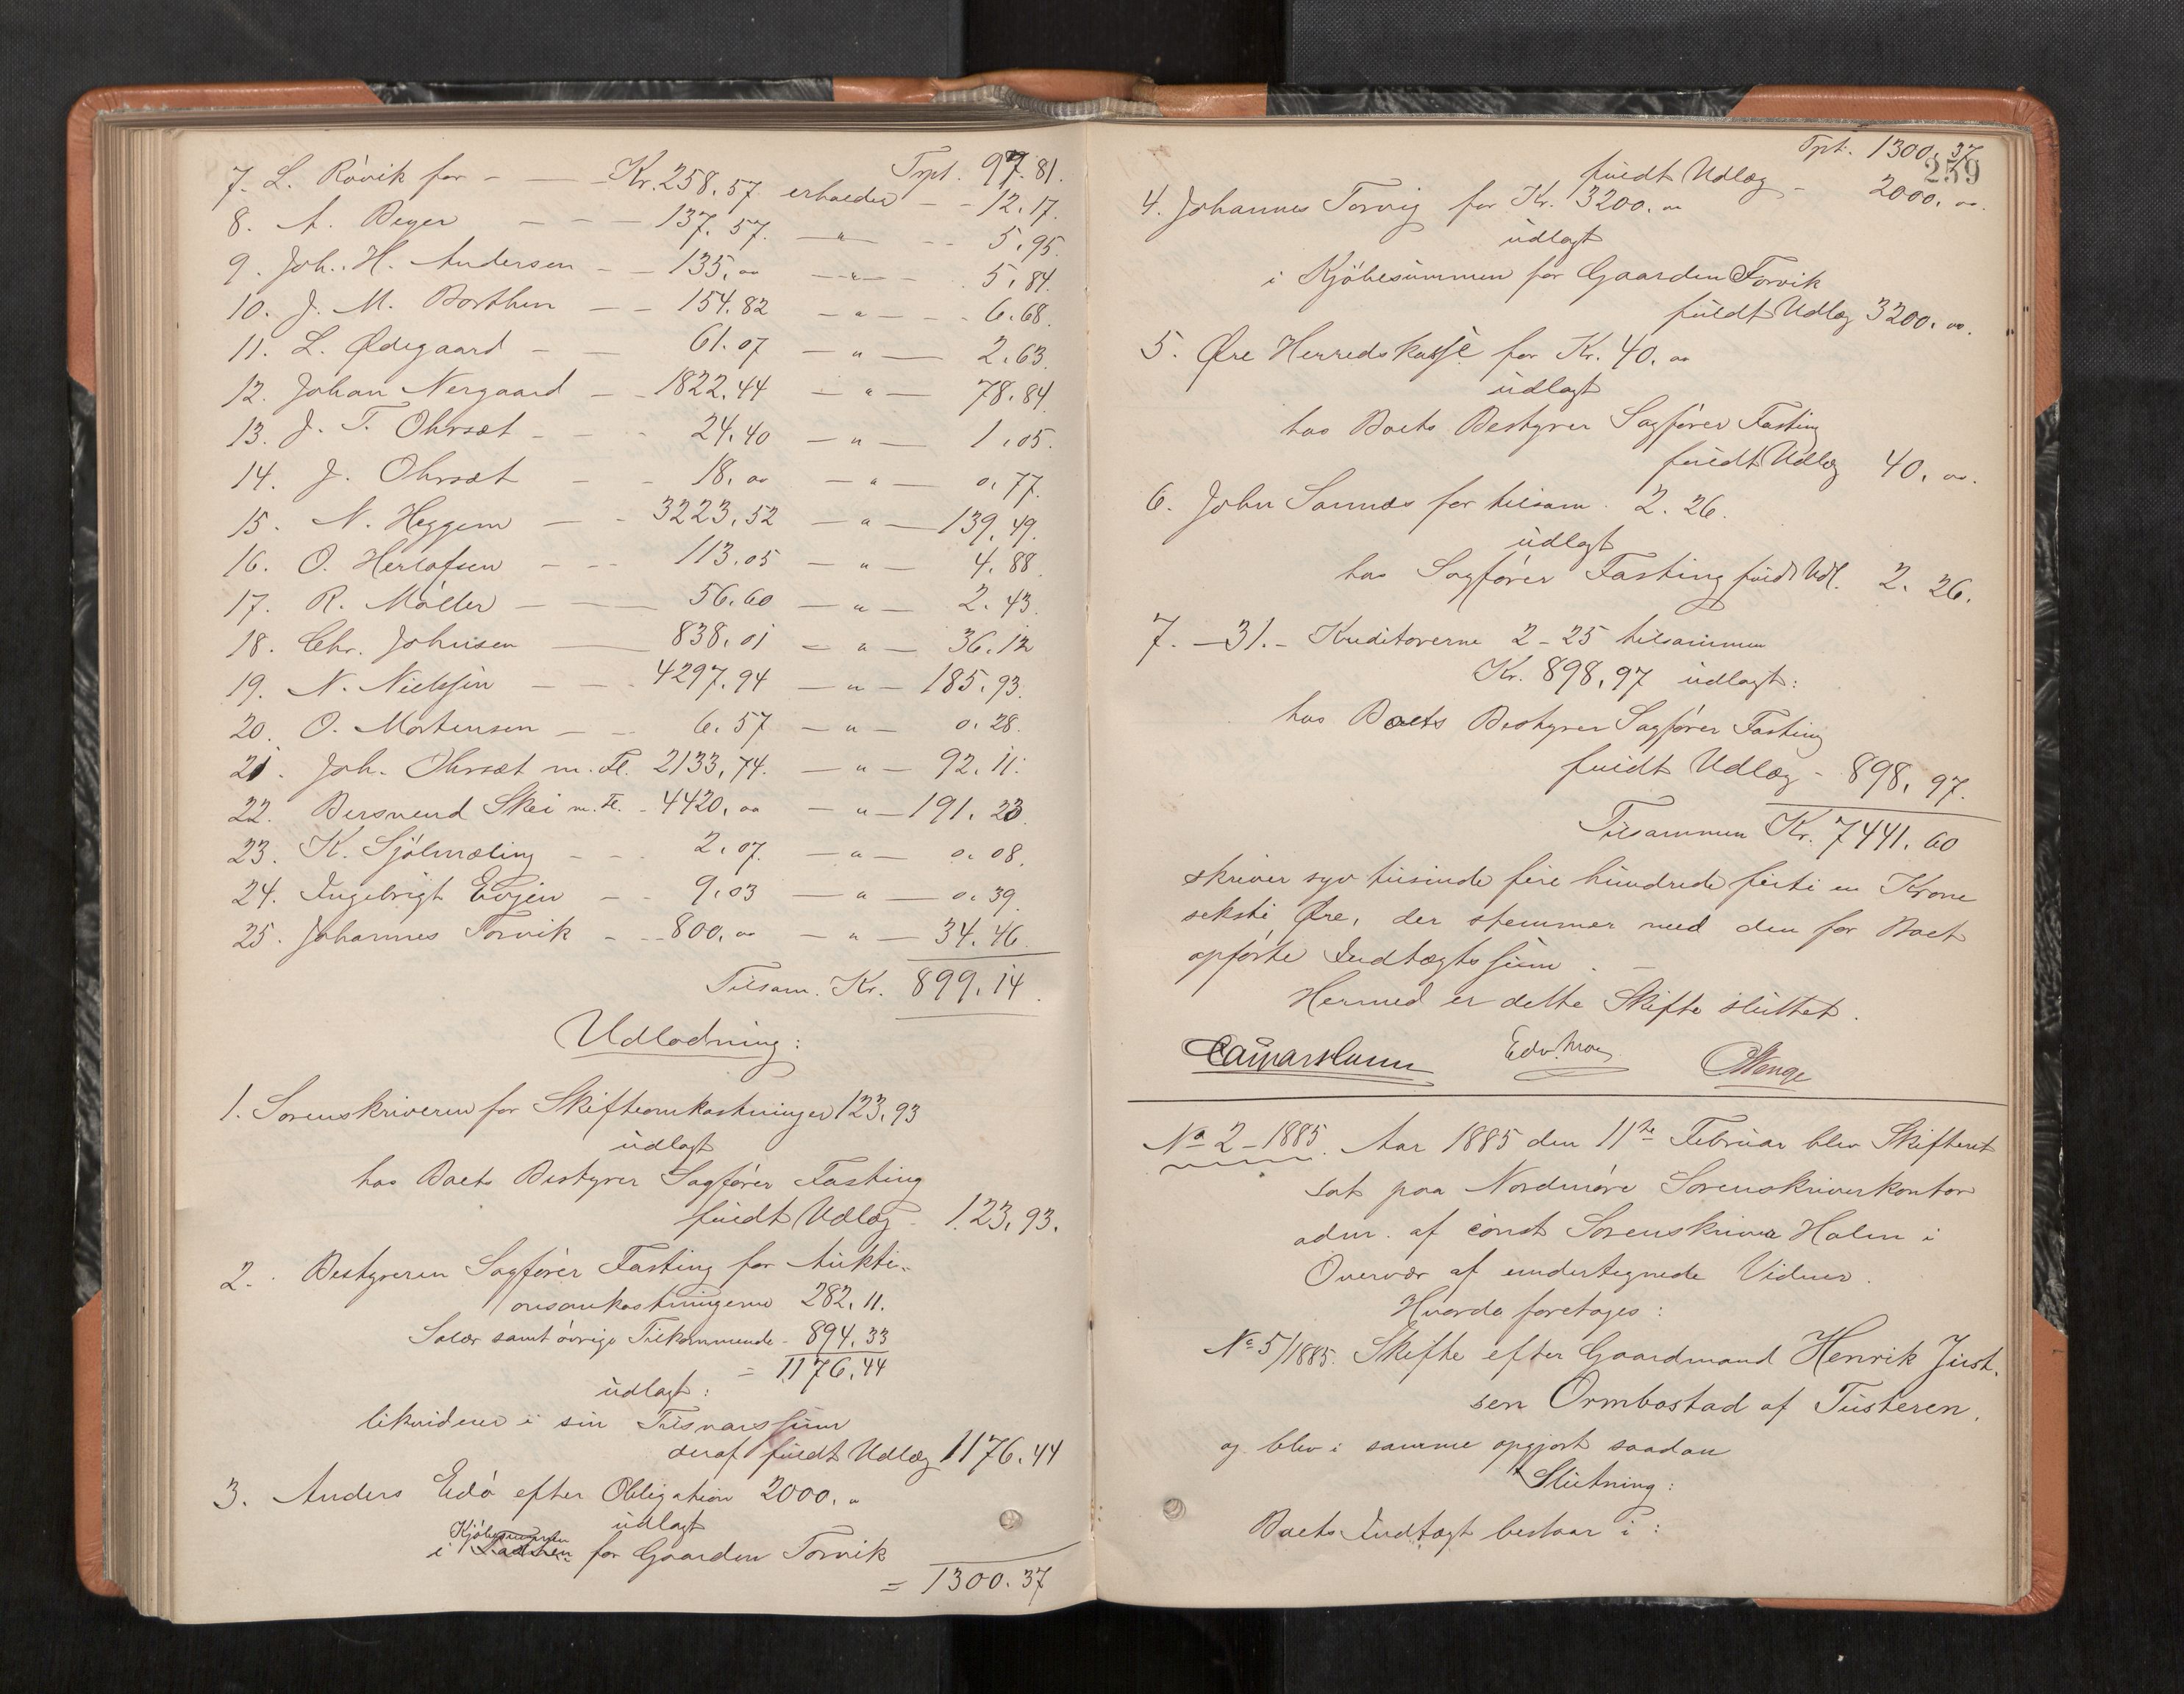 Trpt. 97.81.
7. L. Rövik for — Kr. 258.57. erholder — 12.17.
8. A. Beyer — 137.57. — " — 5.95.
9. Joh. H. Andersen — 135.00 — " — 5.84.
10. J. M. Borthen — 154.82 — " — 6.68.
11. L. Ødegaard — 61.07 — " — 2.63.
12. Johan Nergaard — 1822.44 — " — 78.84.
13. J. T. Ohrset — 24.40 — " — 1.05.
14. J. Ohrset — 18.00 — " — 0.77.
15. N. Heggem — 3223.52 — " — 139.49.
16. O. Herlofsen — 113.05 — " — 4.88.
17. R. Möller — 56.60 — " — 2.43.
18. Chr. Johnsen — 838.01 — " — 36.12
19. N. Nielsen — 4297.94 — " — 185.93.
20. O. Mortensen — 6.57 — " — 0.28.
21. Joh. Ohrset m. Fl. 2133.74. — " — 92.11.
22. Bersvend Skei m. Fl. — 4420.00 — " — 191.23.
23. K. Sjölmæling — 2.07. — " — 0.08.
24. Ingebrigt Evjen — 9.03 — " — 0.39.
25. Johannes Torvik — 800.00 — " — 34.46.
Tilsam. Kr. 899.14.
Udlodning:
1. Sorenskriveren for Skifteomkostninger 123.93
udlagt
hos Boets Bestyrer Sagförer Fasting
fuldt Udlæg - 123.93.
2. Bestyreren Sagförer Fasting for Aukti-
onsomkostningerne 282.11.
Salær samt övrige Tilkommende - 894.33
= 1176.44
udlagt:
likviderer i sin Tilsvarssum
deraf fuldt Udlæg 1176.44
3. Anders Edö efter Obligation 2000.00
udlagt
i Kjöbesummen for Gaarden Torvik
= 1300.37
Trpt. 1300.37
259
fuldt Udlæg - 2000.00.
4. Johannes Torvig for Kr. 3200.00
udlagt
i Kjöbesummen for Gaarden Torvik
fuldt Udlæg 3200.00.
5. Øre Herredskasse for Kr. 40.00
udlagt
hos Boets Bestyrer Sagförer Fasting
fuldt Udlæg 40.00.
6. John Sannes for tilsam. 2.26.
udlagt
hos Sagförer Fasting fuldt Udl. 2.26.
7.—31.— Kreditorerne 2-25 tilsammen
Kr. 898.97 udlagt:
hos Boets Bestyrer Sagförer Fasting
fuldt Udlæg - 898.97.
Tilsammen Kr. 7441.60
skriver syv tusinde fire hundrede firti en Krone
seksti Øre, der stemmer med den for Boet
opförte Indtægtssum. —
Hermed er dette Skifte sluttet.
Edv. Moe
No 2 - 1885. Aar 1885 den 11te Februar blev Skifteret
sat paa Nordmöre Sorenskriverkontor
adm. af const Sorenskriver Holm i
Overvær af undertegnede Vidner.
Hvorda foretages:
No 5/1885. Skifte efter Gaardmand Henrik Just-
sen Ormbostad af Tusteren,
og blev i samme opgjort saadan
Slutning:
Boets Indtægt bestaar i: